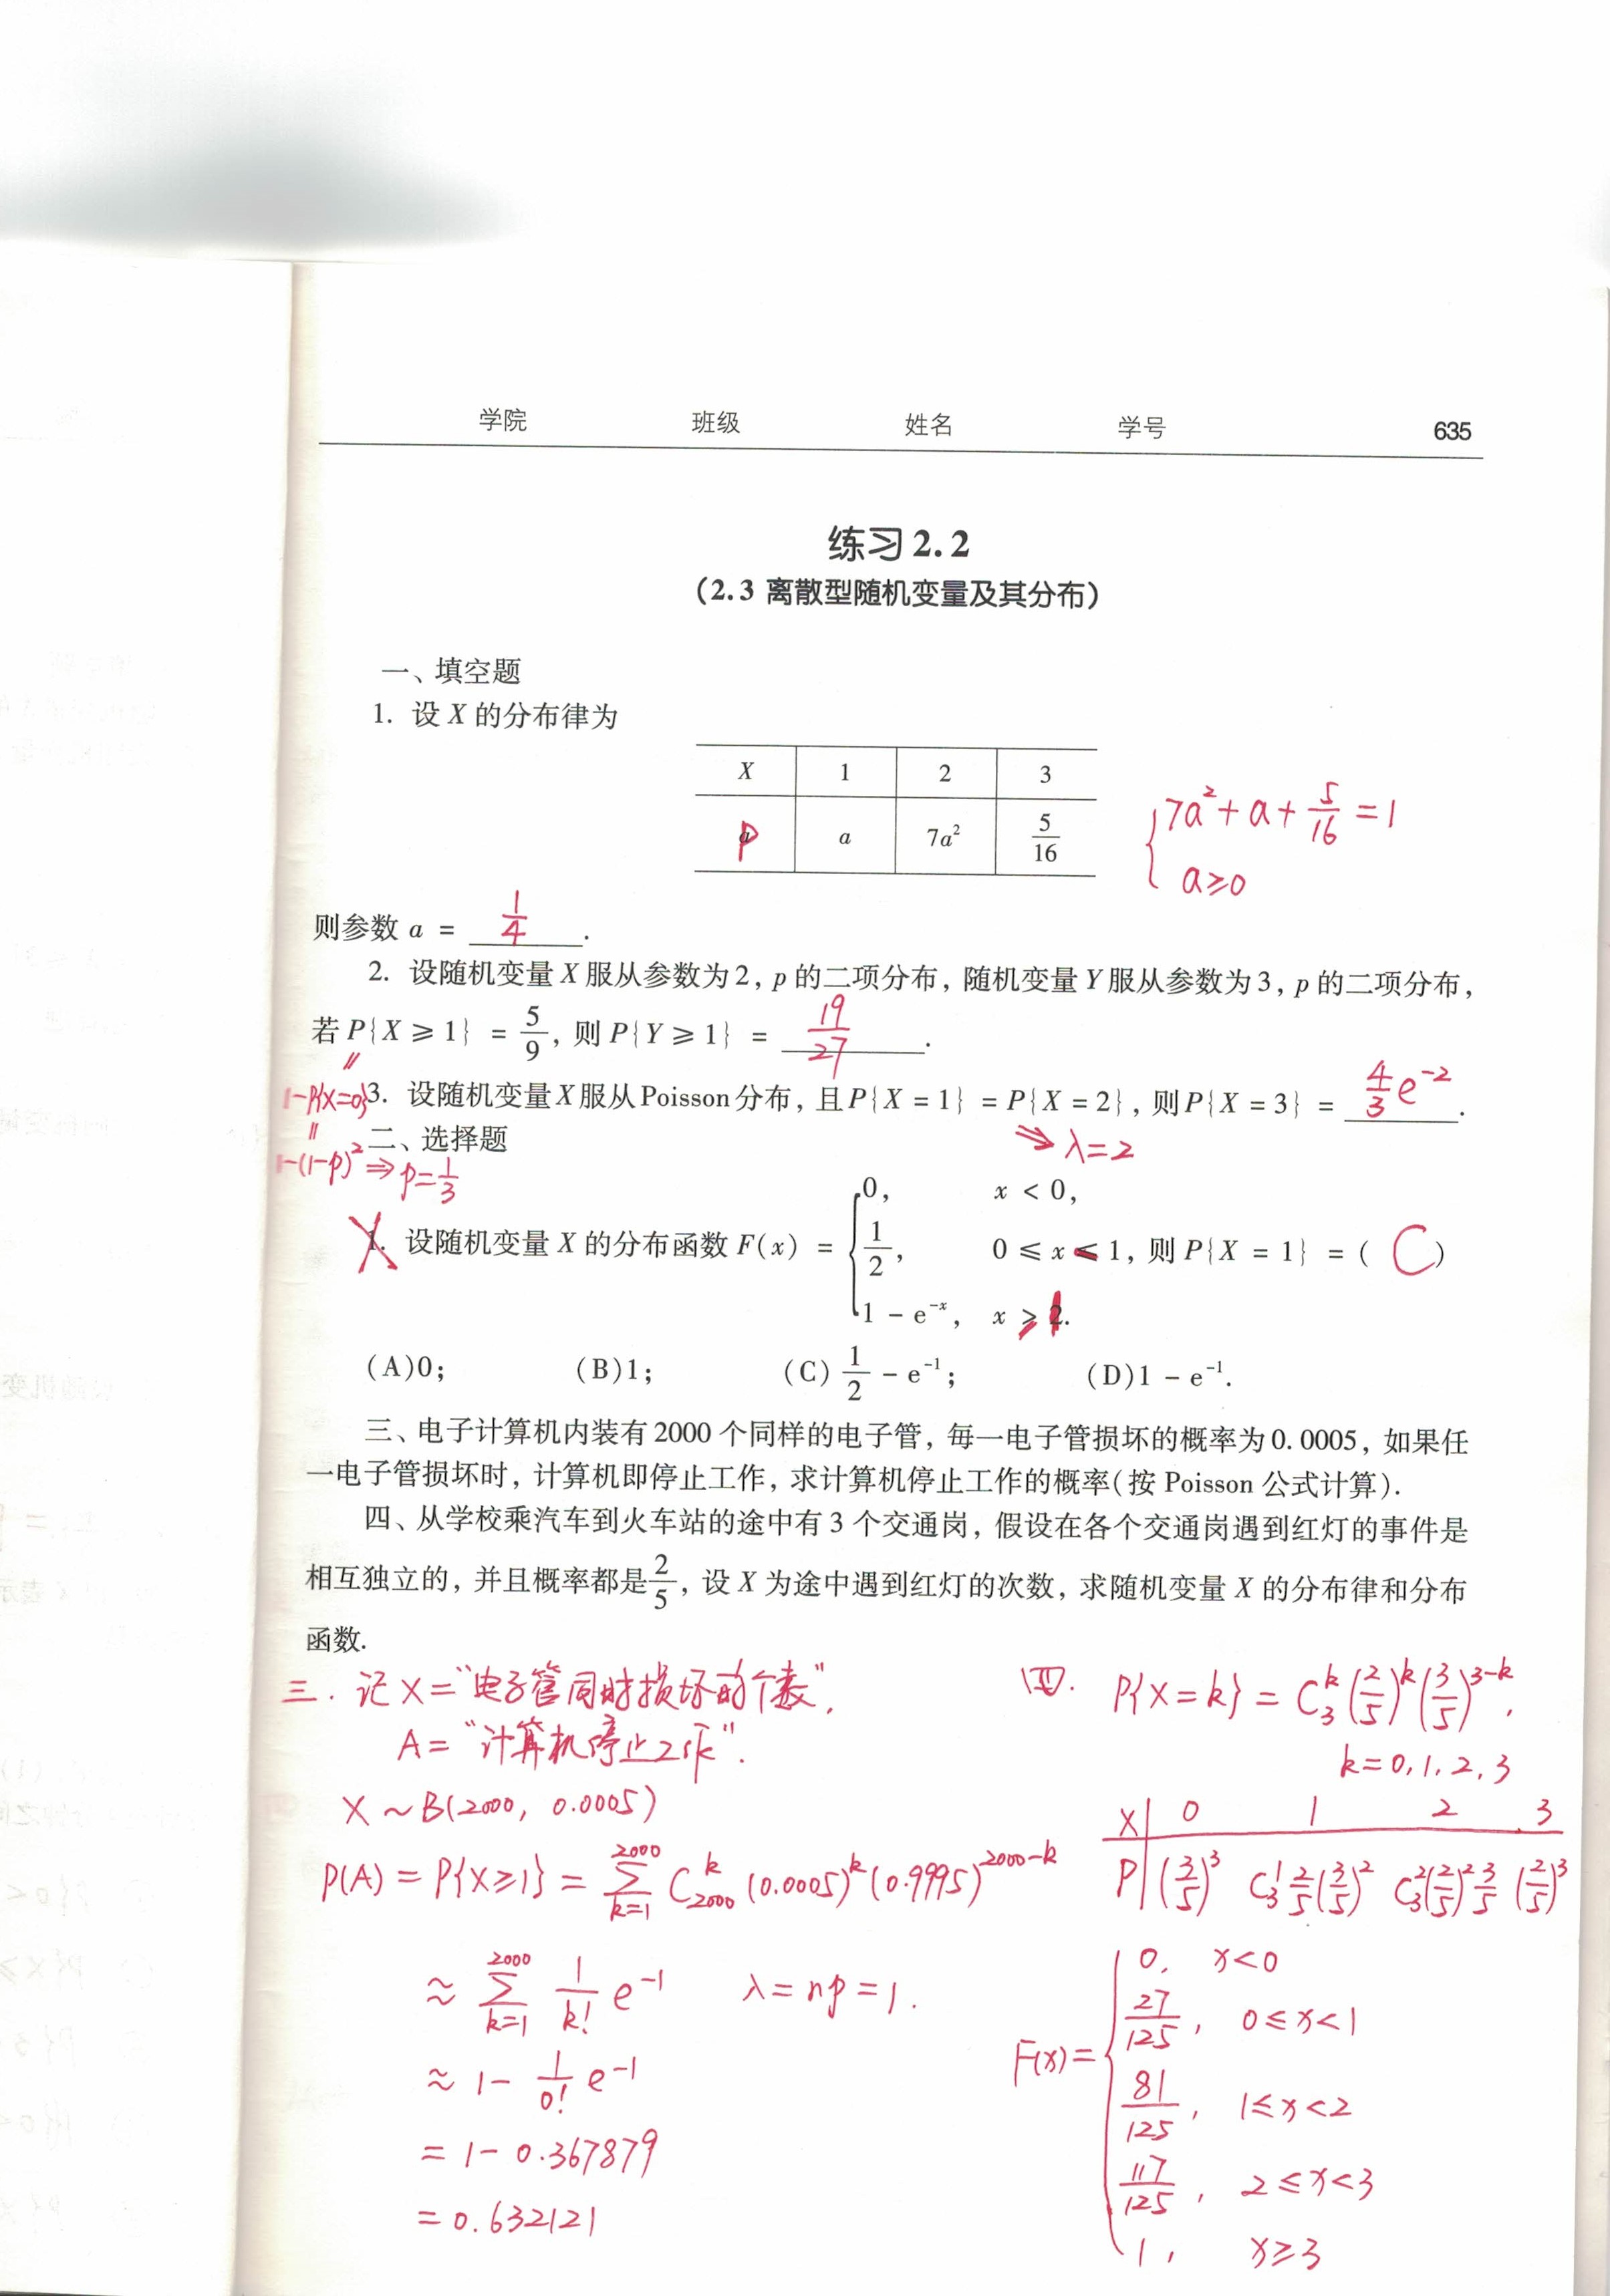 学院 班级 姓名 学号 635
练习2.2
(2.3 离散型随机变量及其分布)
一、填空题
1. 设 X 的分布律为
X 1 2 3
P a 7a² 5/16
{7a²+a+5/16=1
a≥0
则参数 a = 1/4.
2. 设随机变量 X 服从参数为2, p 的二项分布, 随机变量 Y 服从参数为3, p 的二项分布,
若 P{X ≥ 1} = 5/9, 则 P{Y ≥ 1} = 19/27.
=
1-P{X=0}
=
1-(1-p)² ⇒ p=1/3
3. 设随机变量 X 服从 Poisson 分布, 且 P{X = 1} = P{X = 2}, 则 P{X = 3} = 4/3 e⁻².
⇒ λ=2
二、选择题
1. 设随机变量 X 的分布函数 F(x) = { 0, x < 0,
1/2, 0 ≤ x < 1, 则 P{X = 1} = ( C )
1 - e⁻ˣ, x ≥ 1.
(A)0; (B)1; (C) 1/2 - e⁻¹; (D)1 - e⁻¹.
三、电子计算机内装有 2000 个同样的电子管, 每一电子管损坏的概率为 0.0005, 如果任
一电子管损坏时, 计算机即停止工作, 求计算机停止工作的概率(按 Poisson 公式计算).
四、从学校乘汽车到火车站的途中有 3 个交通岗, 假设在各个交通岗遇到红灯的事件是
相互独立的, 并且概率都是 2/5, 设 X 为途中遇到红灯的次数, 求随机变量 X 的分布律和分布
函数.
三. 记 X="电子管同时损坏的个数",
A="计算机停止工作".
X ~ B(2000, 0.0005)
P(A) = P{X≥1} = ∑_{k=1}^{2000} C_{2000}^k (0.0005)^k (0.9995)^{2000-k}
≈ ∑_{k=1}^{2000} 1/k! e⁻¹ λ=np=1.
≈ 1- 1/0! e⁻¹
= 1- 0.367879
= 0.632121
四. P{X=k} = C_3^k (2/5)^k (3/5)^{3-k},
k=0,1,2,3
X 0 1 2 3
P (3/5)³ C_3^1 2/5 (3/5)² C_3^2 (2/5)² 3/5 (2/5)³
F(x)= { 0, x<0
27/125, 0≤x<1
81/125, 1≤x<2
117/125, 2≤x<3
1, x≥3